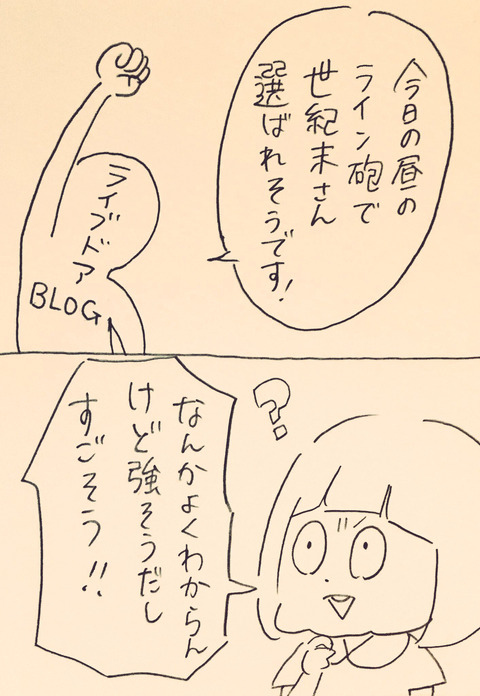 今日の昼の
ライン砲で
世紀末さん
選ばれそうです!
ライブドア
BLOG
?
なんかよくわからん
けど強そうだし
すごそう!!